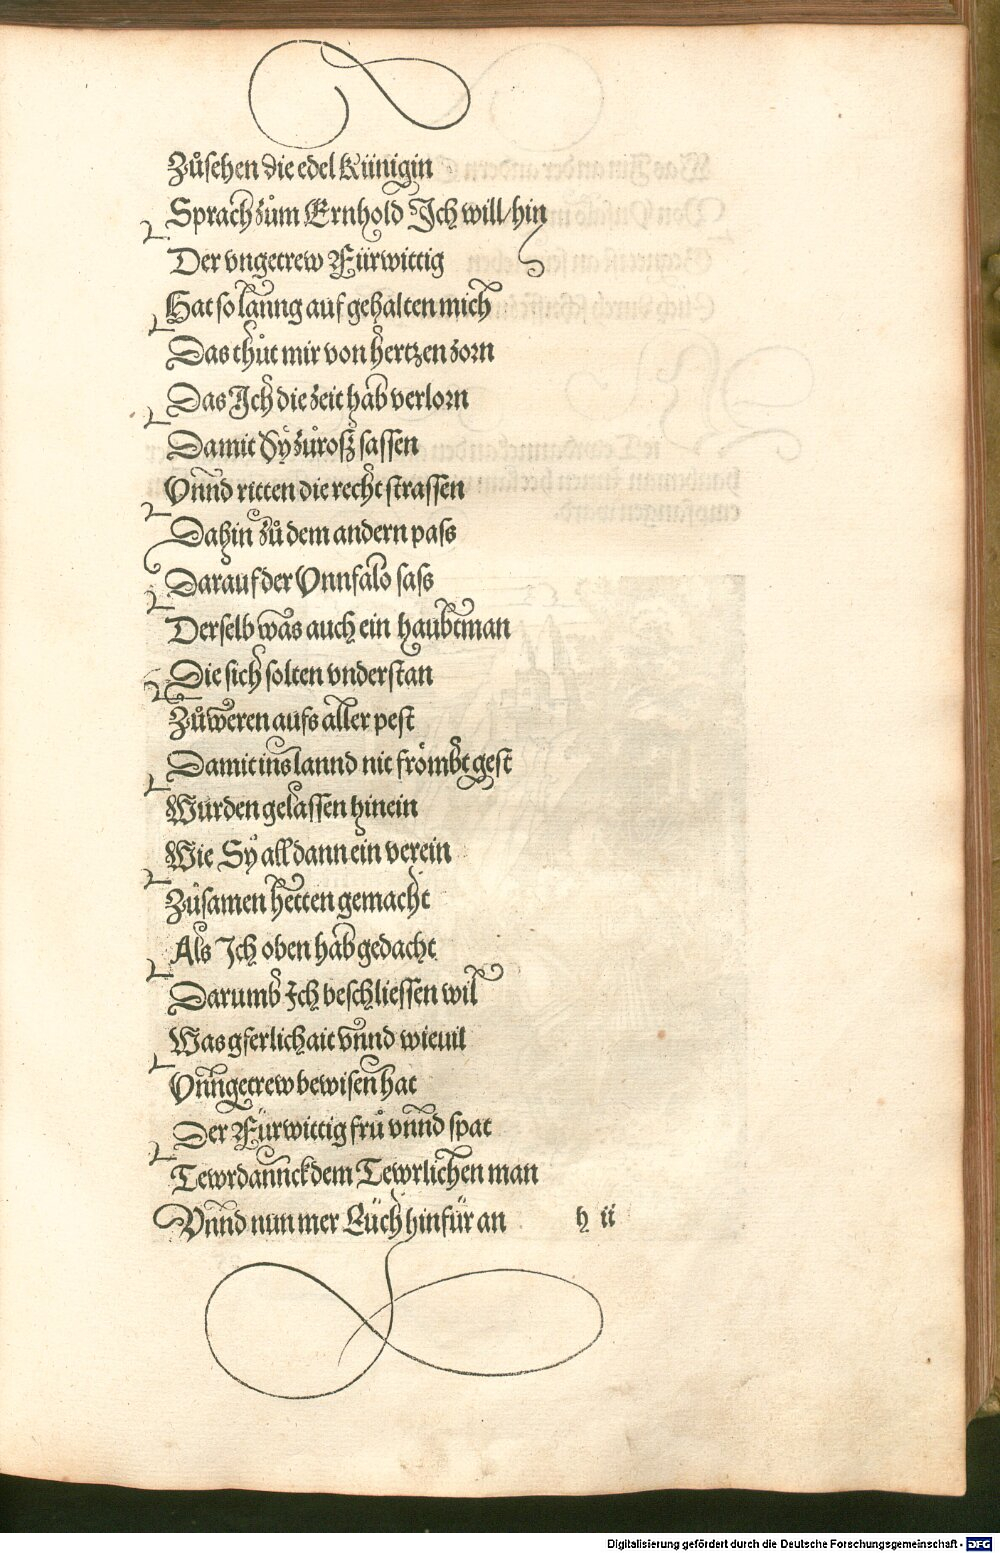 Zůsehen die edel Künigin
Sprach zům Ernhold Ich will hin
Der vngetrew Fürwittig
Hat so lanng auf gehalten mich
Das thůt mir von hertzen zorn
Das Ich die zeit hab verlorn
Damit Sy zů roſʒ sassen
Vnnd ritten die recht strassen
Dahin zů dem andern pass
Darauf der Vnnfalo sass
Derselb was auch ein haubtman
Die sich solten vnderstan
Zůweren aufs aller pest
Damit ins lannd nit frömbt gest
Wurden gelassen hinein
Wie Sy all dann ein verein
Zůsamen hetten gemacht
Als Ich oben hab gedacht
Darumb Ich beschliessen wil
Was gferlichait vnnd wieuil
Vnngetrew bewisen hat
Der Fürwittig frů vnnd spat
Tewrdannck dem Tewrlichen man
Vnnd nun mer Euch hinfür an
h ii
Digitalisierung gefördert durch die Deutsche Forschungsgemeinschaft - DFG